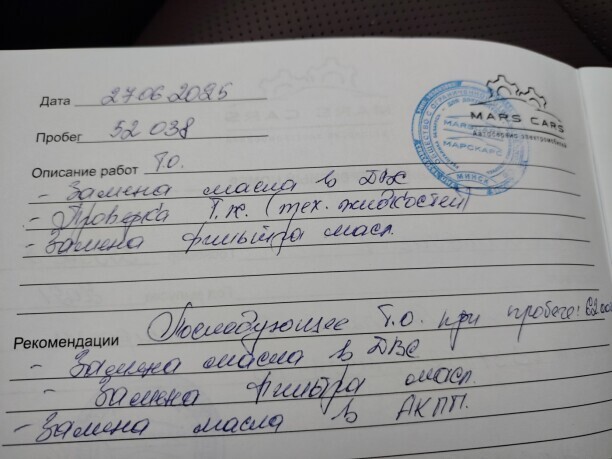 Дата 27.06.2025
Пробег 52 038
Описание работ Т.О.
- Замена масла в ДВС
- Проверка Т.Ж. (тех. жидкостей)
- Замена фильтра масл.
MARS CARS
МАРСКАРС
МИНСК
Рекомендации Последующее Т.О. при пробеге:
- Замена масла в ДВС
- Замена фильтра масл.
- Замена масла в АКПП.